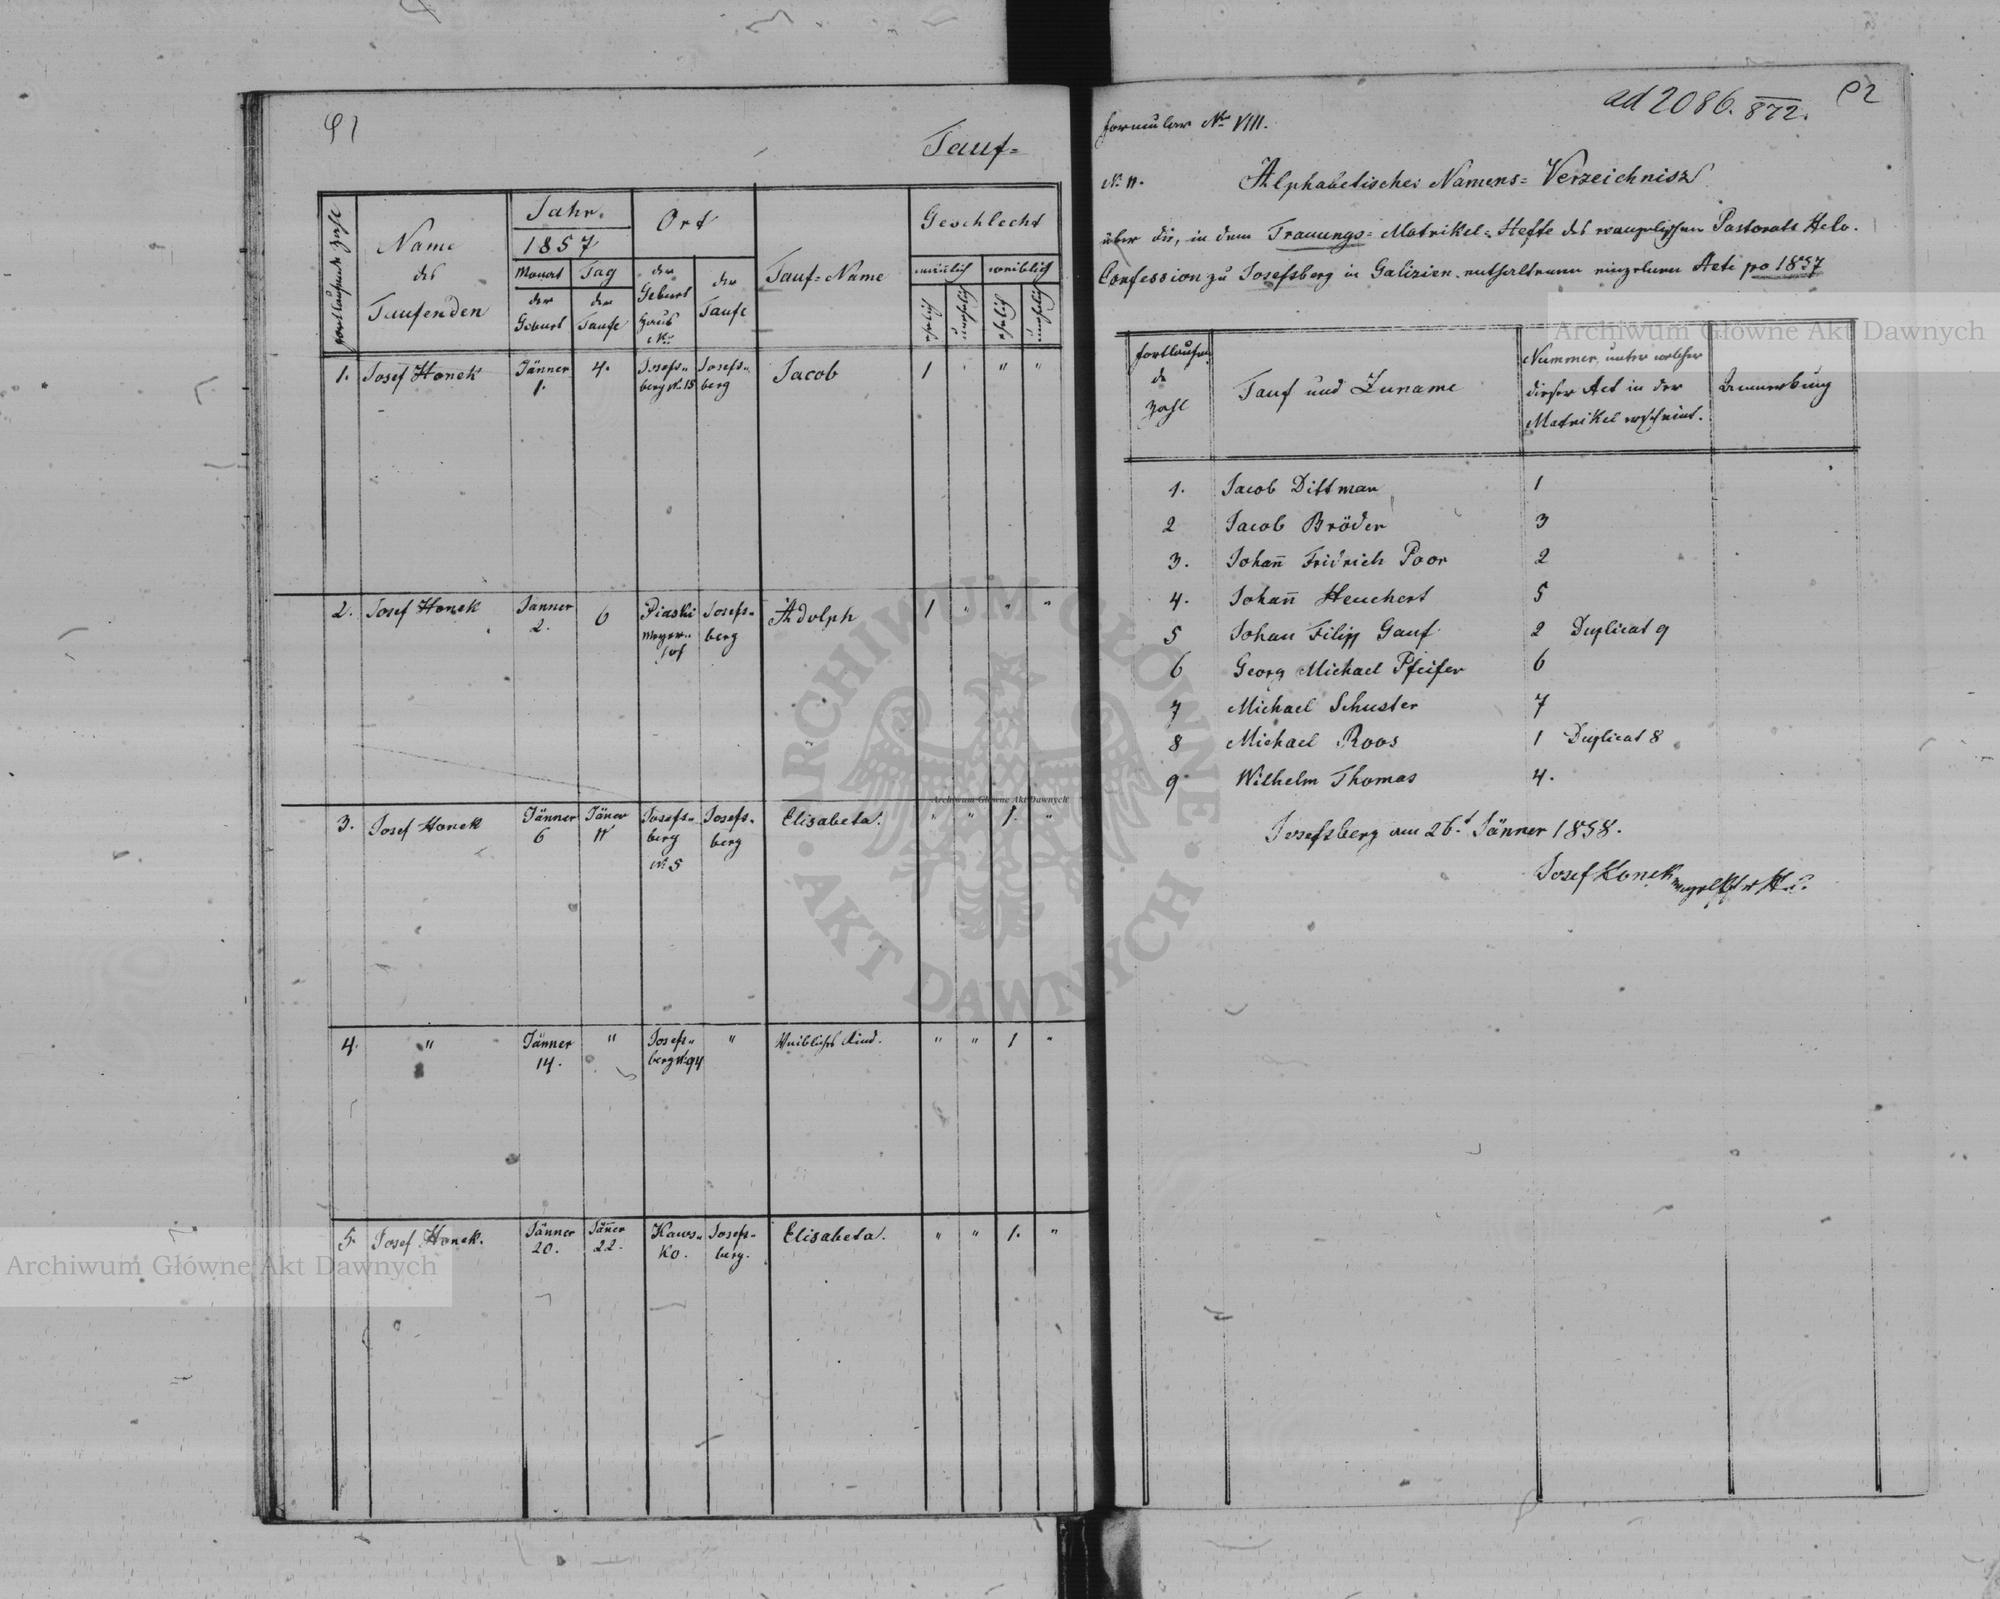 91
Tauf=
fortlaufende Zahl
Name
des
Taufenden
Jahr.
1857
Monat
der
Geburt
Tag
der
Taufe
Ort
der
Geburt
Haus
Nro
der
Taufe
Tauf=Name
Geschlecht
männlich
weiblich
ehelich
unehelich
ehelich
unehelich
1. Josef Honek Jänner 4. Josefs= Josefs= Jacob 1 " " "
1. berg N. 15 berg
2. Josef Honek Janner 6 Piaski Josefs= Adolph 1 " " "
2. Meyer= berg
hof
3. Josef Honek Jänner Jäner Josefs= Josefs= Elisabeta. " " 1. "
6 11 berg berg
N. 5
4. " Jänner " Josefs= " Weibliches Kind. " " 1 "
14. berg N. 94
5. Josef Honek. Jänner Jäner Kaws= Josefs= Elisabeta. " " 1. "
20. 22. ko. berg.
ad 2086. 872.
92
Formular Nro VIII.
N. 11.
Alphabetisches Namens= Verzeichnisz
über die, in dem Trauungs= Matrikel=Hefte des evangelischen Pastorats Helv.
Confession zu Josefsberg in Galizien enthaltenen einzelnen Acte pro 1857
fortlaufen
de
Zahl
Tauf und Zuname
Nummer, unter welcher
dieser Act in der
Matrikel erscheint.
Anmerkung
1. Jacob Dittman 1
2 Jacob Bröder 3
3. Johan̄ Fridrich Poor 2
4. Johan̄ Heuchert 5
5 Johan Filipp Gauf 2 Duplicat 9
6 Georg Michael Pfeifer 6
7 Michael Schuster 7
8 Michael Roos 1 Duplicat 8
9. Wilhelm Thomas 4.
Josefsberg am 26.t Jänner 1858.
Josef Honek
Archiwum Główne Akt Dawnych
ARCHIWUM GŁÓWNE · AKT DAWNYCH ·
Archiwum Główne Akt Dawnych
Archiwum Główne Akt Dawnych